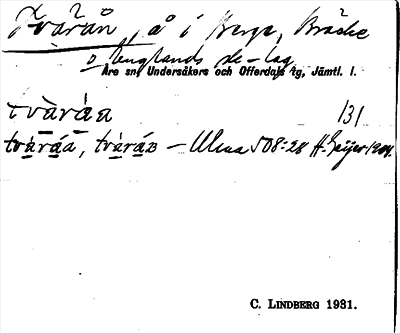 Tvärån, å i Bergs, Bräcke
o Henglands de-lag
Åre sn, Undersåkers och Offerdals tg, Jämtl. l.
tvàráa 131
tvàráa, tvàráɴ – Ulma 508:28 H. Geijer 1904.
C. LINDBERG 1981.